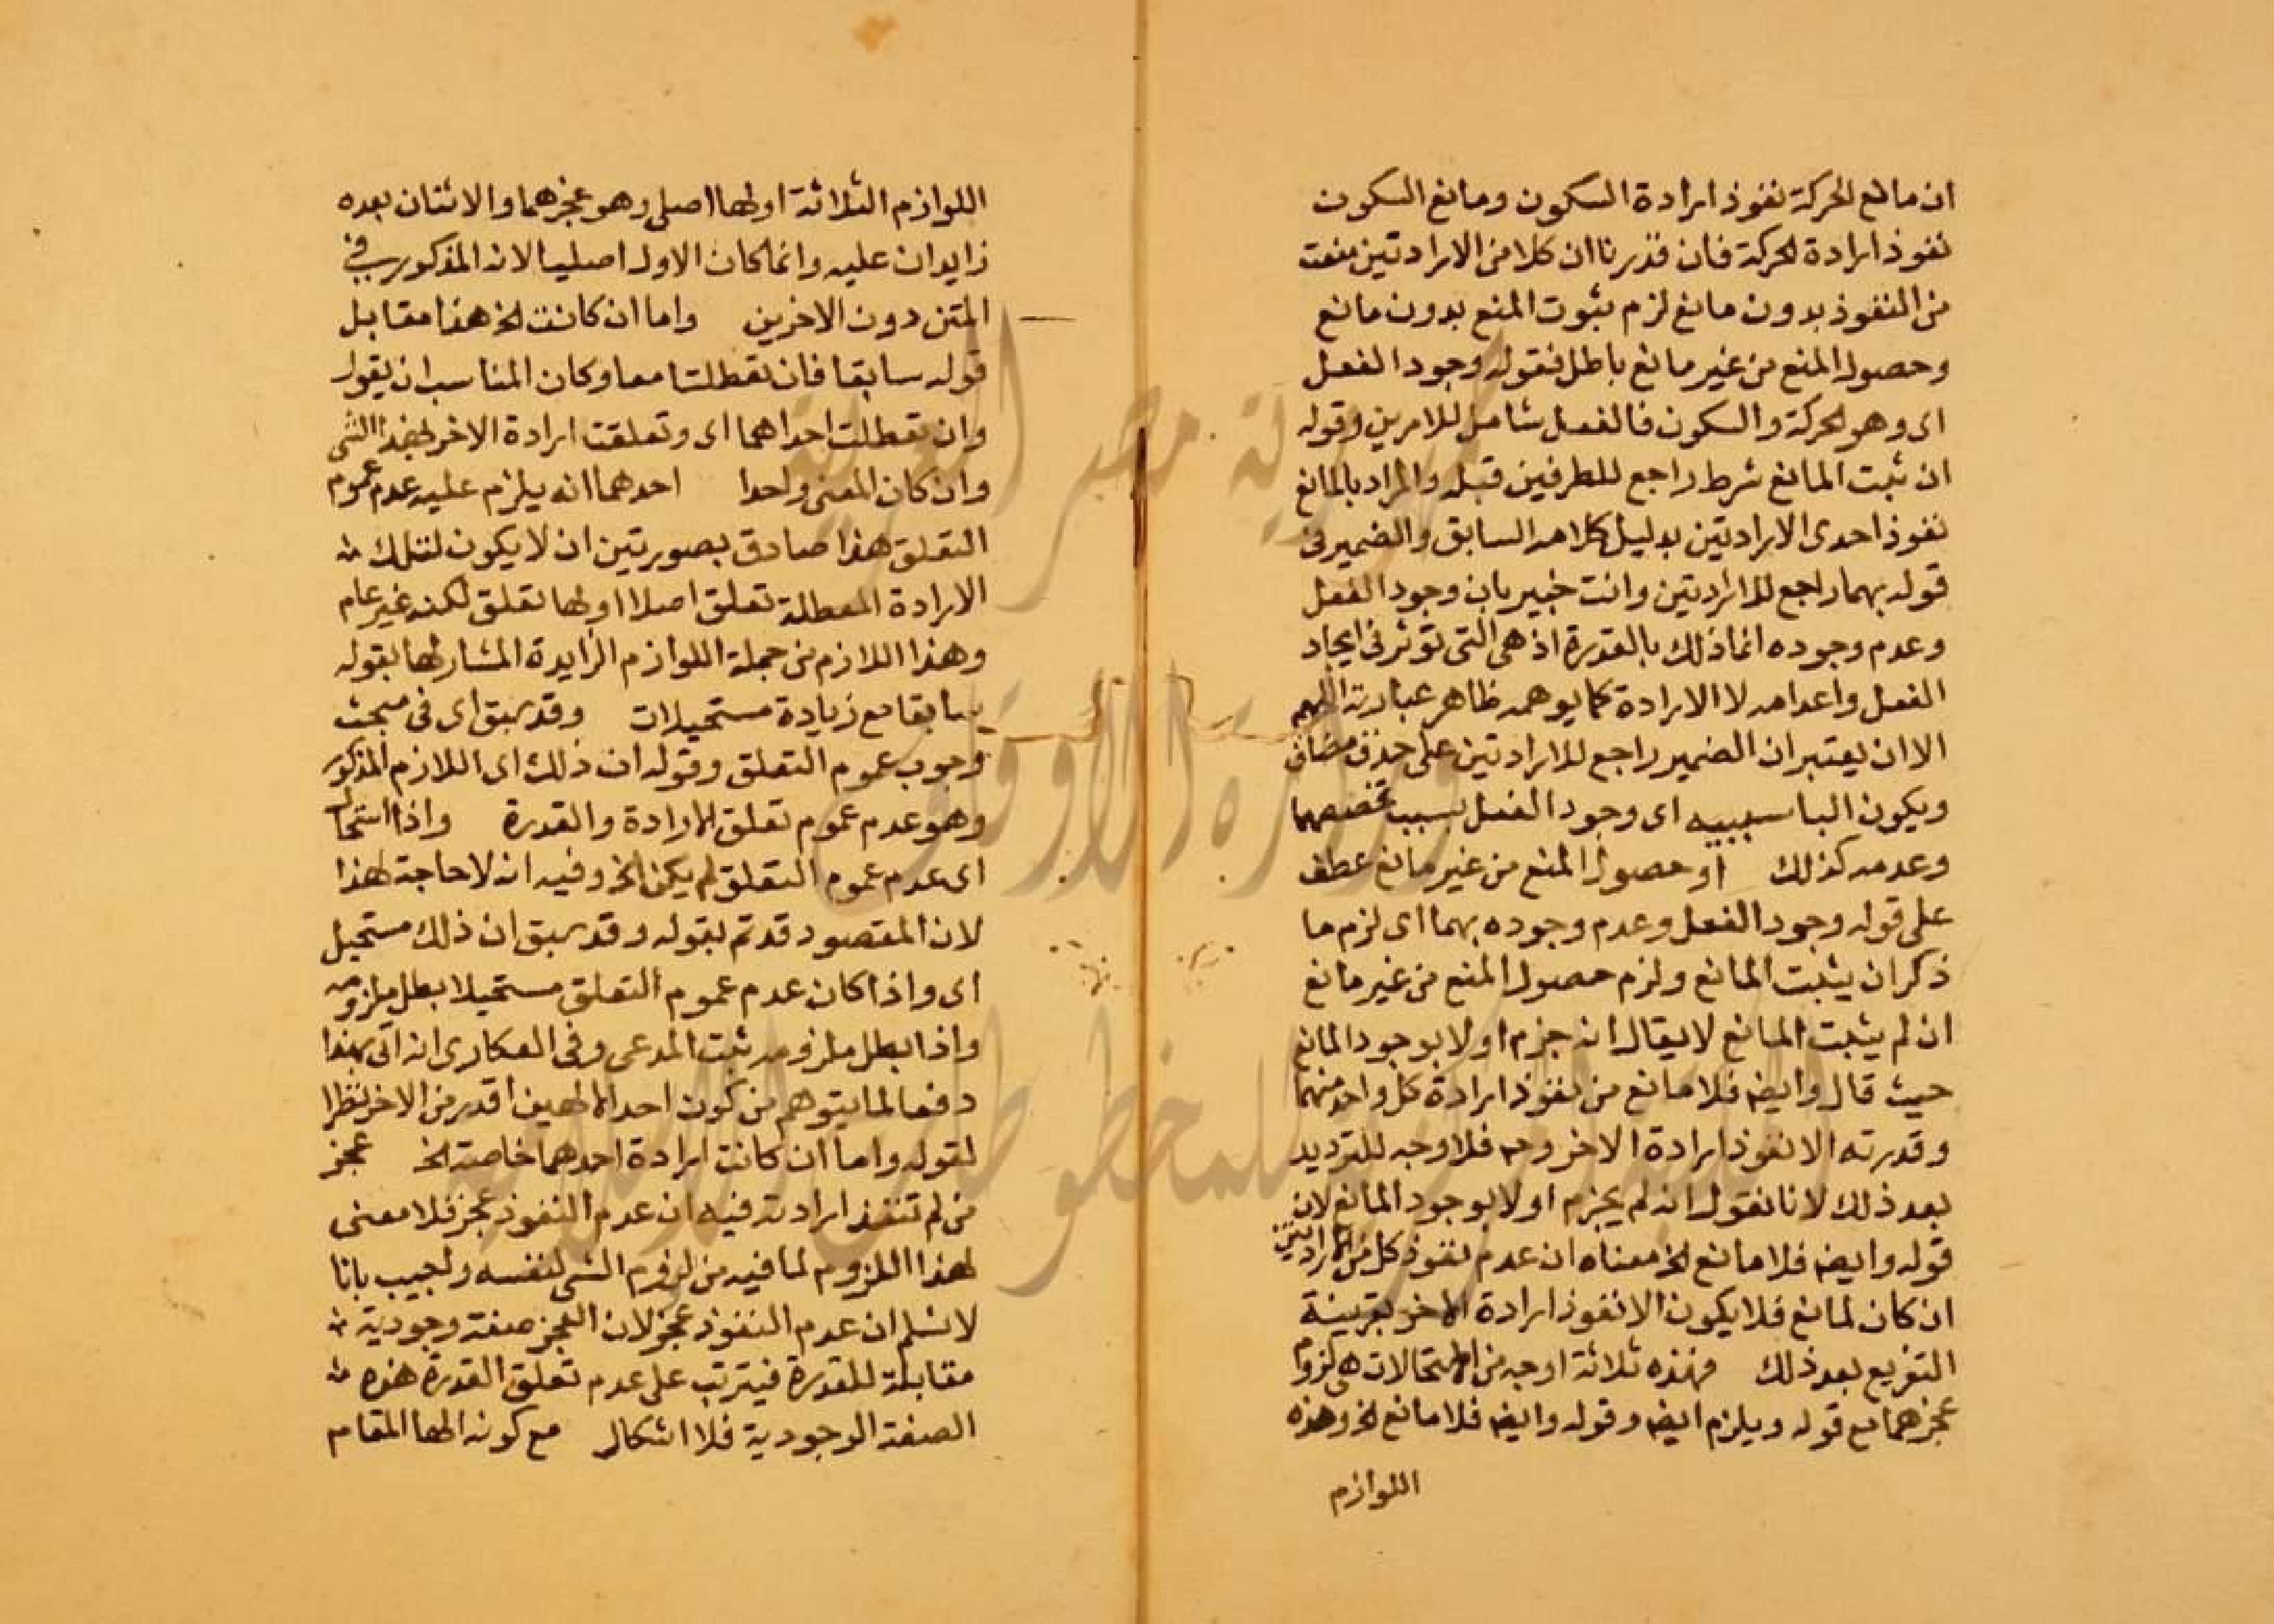 ان مانع الحركة نفوذ ارادة السكون ومانع السكون
نفوذ ارادة الحركة فان قدرنا ان كلا من الارادتين منعت
من النفوذ بدون مانع لزم ثبوت المنع بدون مانع
وحصول المنع من غير مانع باطل فقوله وجود الفعل
اى وهو الحركة والسكون فالفعل شامل للامرين وقوله
ان ثبت المانع شرط راجع للطرفين قبله والمراد بالمانع
نفوذ احدى الارادتين بدليل كلامه السابق والضمير فى
قوله بهما راجع للارادتين وانت خبير بان وجود الفعل
وعدم وجوده انما ذلك بالقدرة اذ هى التى تؤثر فى ايجاد
الفعل واعدامه لا الارادة كما يوهمه ظاهر عبارته اللهم
الا ان يعتبر ان الضمير راجع للارادتين على حذف مضاف
ويكون البا سببيه اى وجود الفعل بسبب تخصيصهما
وعدمه كذلك او حصول المنع من غير مانع عطف
على قوله وجود الفعل وعدم وجوده بهما اى لزم ما
ذكر ان يثبت المانع ولزم حصول المنع من غير مانع
ان لم يثبت المانع لا يقال انه جزم اولا بوجود المانع
حيث قال وايضا فلا مانع من نفوذ ارادة كل واحد منهما
وقدرته الا نفوذ ارادة الاخر وح فلا وجه للترديد
بعد ذلك لانا نقول انه لم يجزم اولا بوجود المانع لان
قوله وايضا فلا مانع الخ معناه ان عدم نفوذ كل من الارادتين
ان كان لمانع فلا يكون الا نفوذ ارادة الاخر بقرينة
التفريع بعد ذلك فهذه ثلاثة اوجه من الاستحالات هى لزوم
عجزهما مع قوله ويلزم ايضا وقوله وايضا فلا مانع الخ وهذه
اللوازم
اللوازم الثلاثة اولها اصلى وهو عجزهما والاثنان بعده
زايدان عليه وانما كان الاول اصليا لانه المذكور فى
المتن دون الاخرين واما ان كانت الخ هذا مقابل
قوله سابقا فان تعطلتا معا وكان المناسب ان يقول
وان تعطلت احداهما اى وتعلقت ارادة الاخر بهذا الشى
وان كان المعنى واحدا احدهما انه يلزم عليه عدم عموم
التعلق هذا صادق بصورتين ان لا يكون لتلك
الارادة المعطلة تعلق اصلا او لها تعلق لكنه غير عام
وهذا اللازم من جملة اللوازم الزايدة المشار لها بقوله
سابقا مع زيادة مستحيلات وقد سبق اى فى مبحث
وجوب عموم التعلق وقوله ان ذلك اى اللازم المذكور
وهو عدم عموم تعلق الارادة والقدرة واذا استحال
اى عدم عموم التعلق لم يكن الخ وفيه انه لا حاجة لهذا
لان المقصود قد تم بقوله وقد سبق ان ذلك مستحيل
اى واذا كان عدم عموم التعلق مستحيلا بطل ملزومه
واذا بطل ملزومه ثبت المدعى وفى العكارى انه اتى بهذا
دفعا لما يتوهم من كون احد الالهين اقدر من الاخر نظرا
لقوله واما ان كانت ارادة احدهما خاصة الخ عجز
من لم تنفذ ارادته فيه ان عدم النفوذ عجز فلا معنى
لهذا اللزوم لما فيه من لزوم الشى لنفسه واجيب بانا
لا نسلم ان عدم النفوذ عجز لان العجز صفة وجودية
مقابلة للقدرة فيترتب على عدم تعلق القدرة هذه
الصفة الوجودية فلا اشكال مع كونه الها المقام